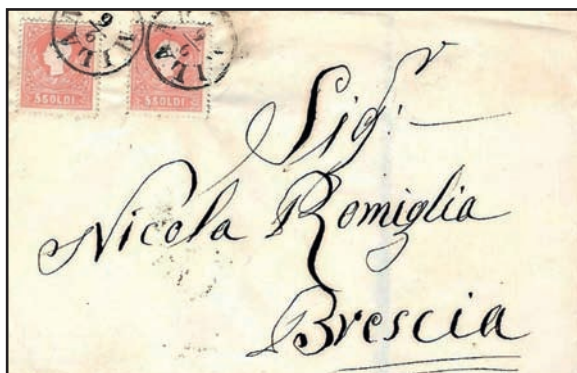 MILA MILA
5 SOLDI 5 SOLDI
Sigr:
Nicola Romiglia
Brescia